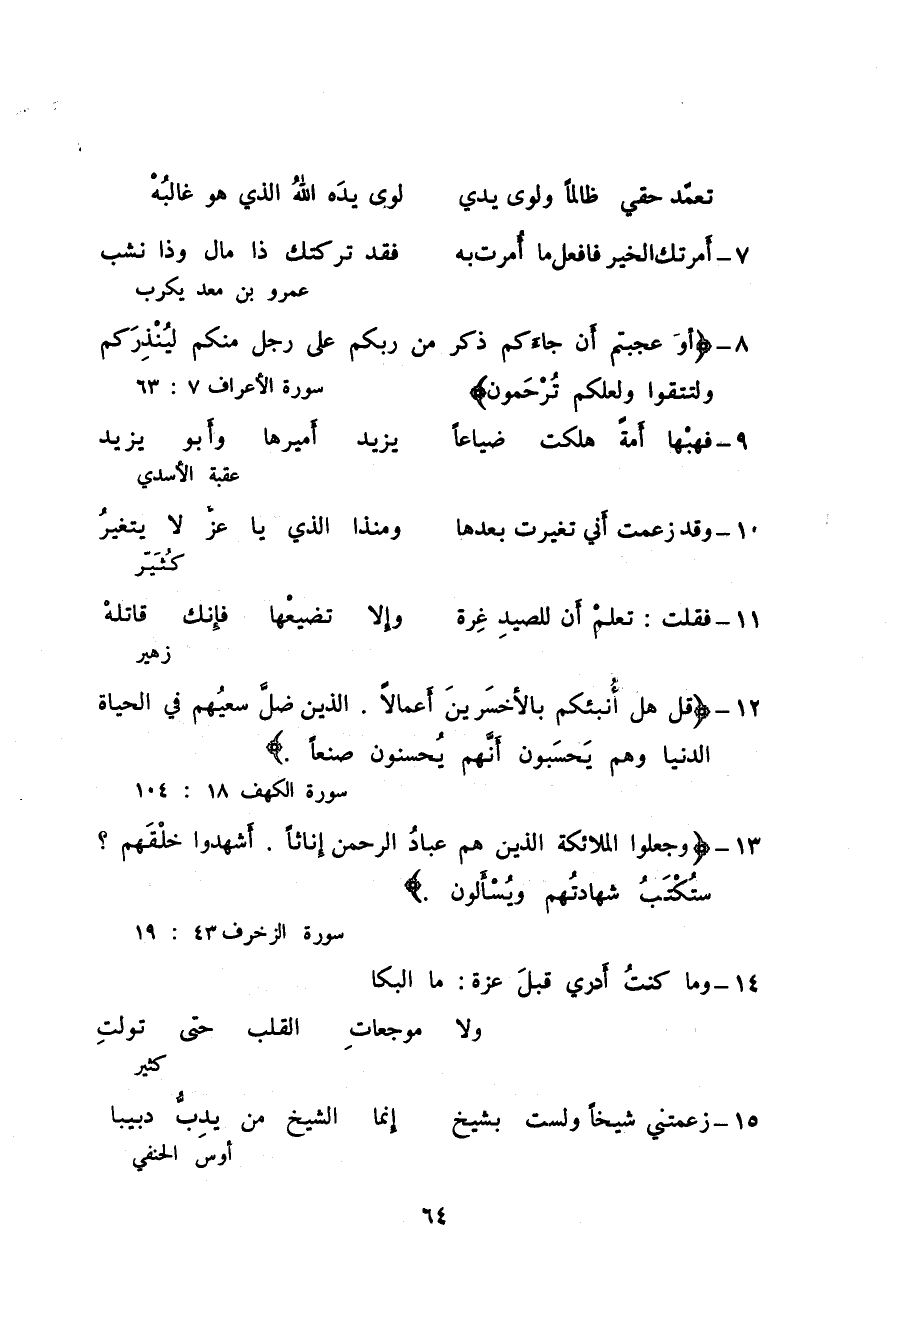 تعمّد حقي ظالماً ولوى يدي لوى يدَه اللهُ الذي هو غالبُهْ
٧ – أَمرتك الخير فافعل ما أُمرت به فقد تركتك ذا مال وذا نشب
عمرو بن معد يكرب
٨ – ﴿أوَ عجبتم أَن جاءكم ذكر من ربكم على رجل منكم ليُنْذِرَكم
ولتتقوا ولعلكم تُرْحَمون﴾ سورة الأعراف ٧ : ٦٣
٩ – فهبْها أَمةً هلكت ضياعاً يزيد أَميرها وأَبو يزيد
عقبة الأسدي
١٠ – وقد زعمت أَني تغيرت بعدها ومنذا الذي يا عزّ لا يتغيرُ
كُثَيّر
١١ – فقلت : تعلمْ أَن للصيدِ غِرة وإلا تضيعْها فإنك قاتلهْ
زهير
١٢ – ﴿قل هل أُنبئكم بالأخسَرينَ أَعمالاً . الذين ضلَّ سعيُهم في الحياة
الدنيا وهم يَحسَبون أَنَّهم يُحسنون صنعاً .﴾
سورة الكهف ١٨ : ١٠٤
١٣ – ﴿وجعلوا الملائكة الذين هم عبادُ الرحمن إناثاً . أَشهدوا خلْقَهم ؟
ستُكْتَبُ شهادتُهم ويُسْأَلون .﴾
سورة الزخرف ٤٣ : ١٩
١٤ – وما كنتُ أَدري قبلَ عزة : ما البكا
ولا موجعاتِ القلب حتى تولتِ
كثير
١٥ – زعمتني شيخاً ولست بشيخ إنما الشيخ من يدِبُّ دبيبا
أوس الحنفي
٦٤